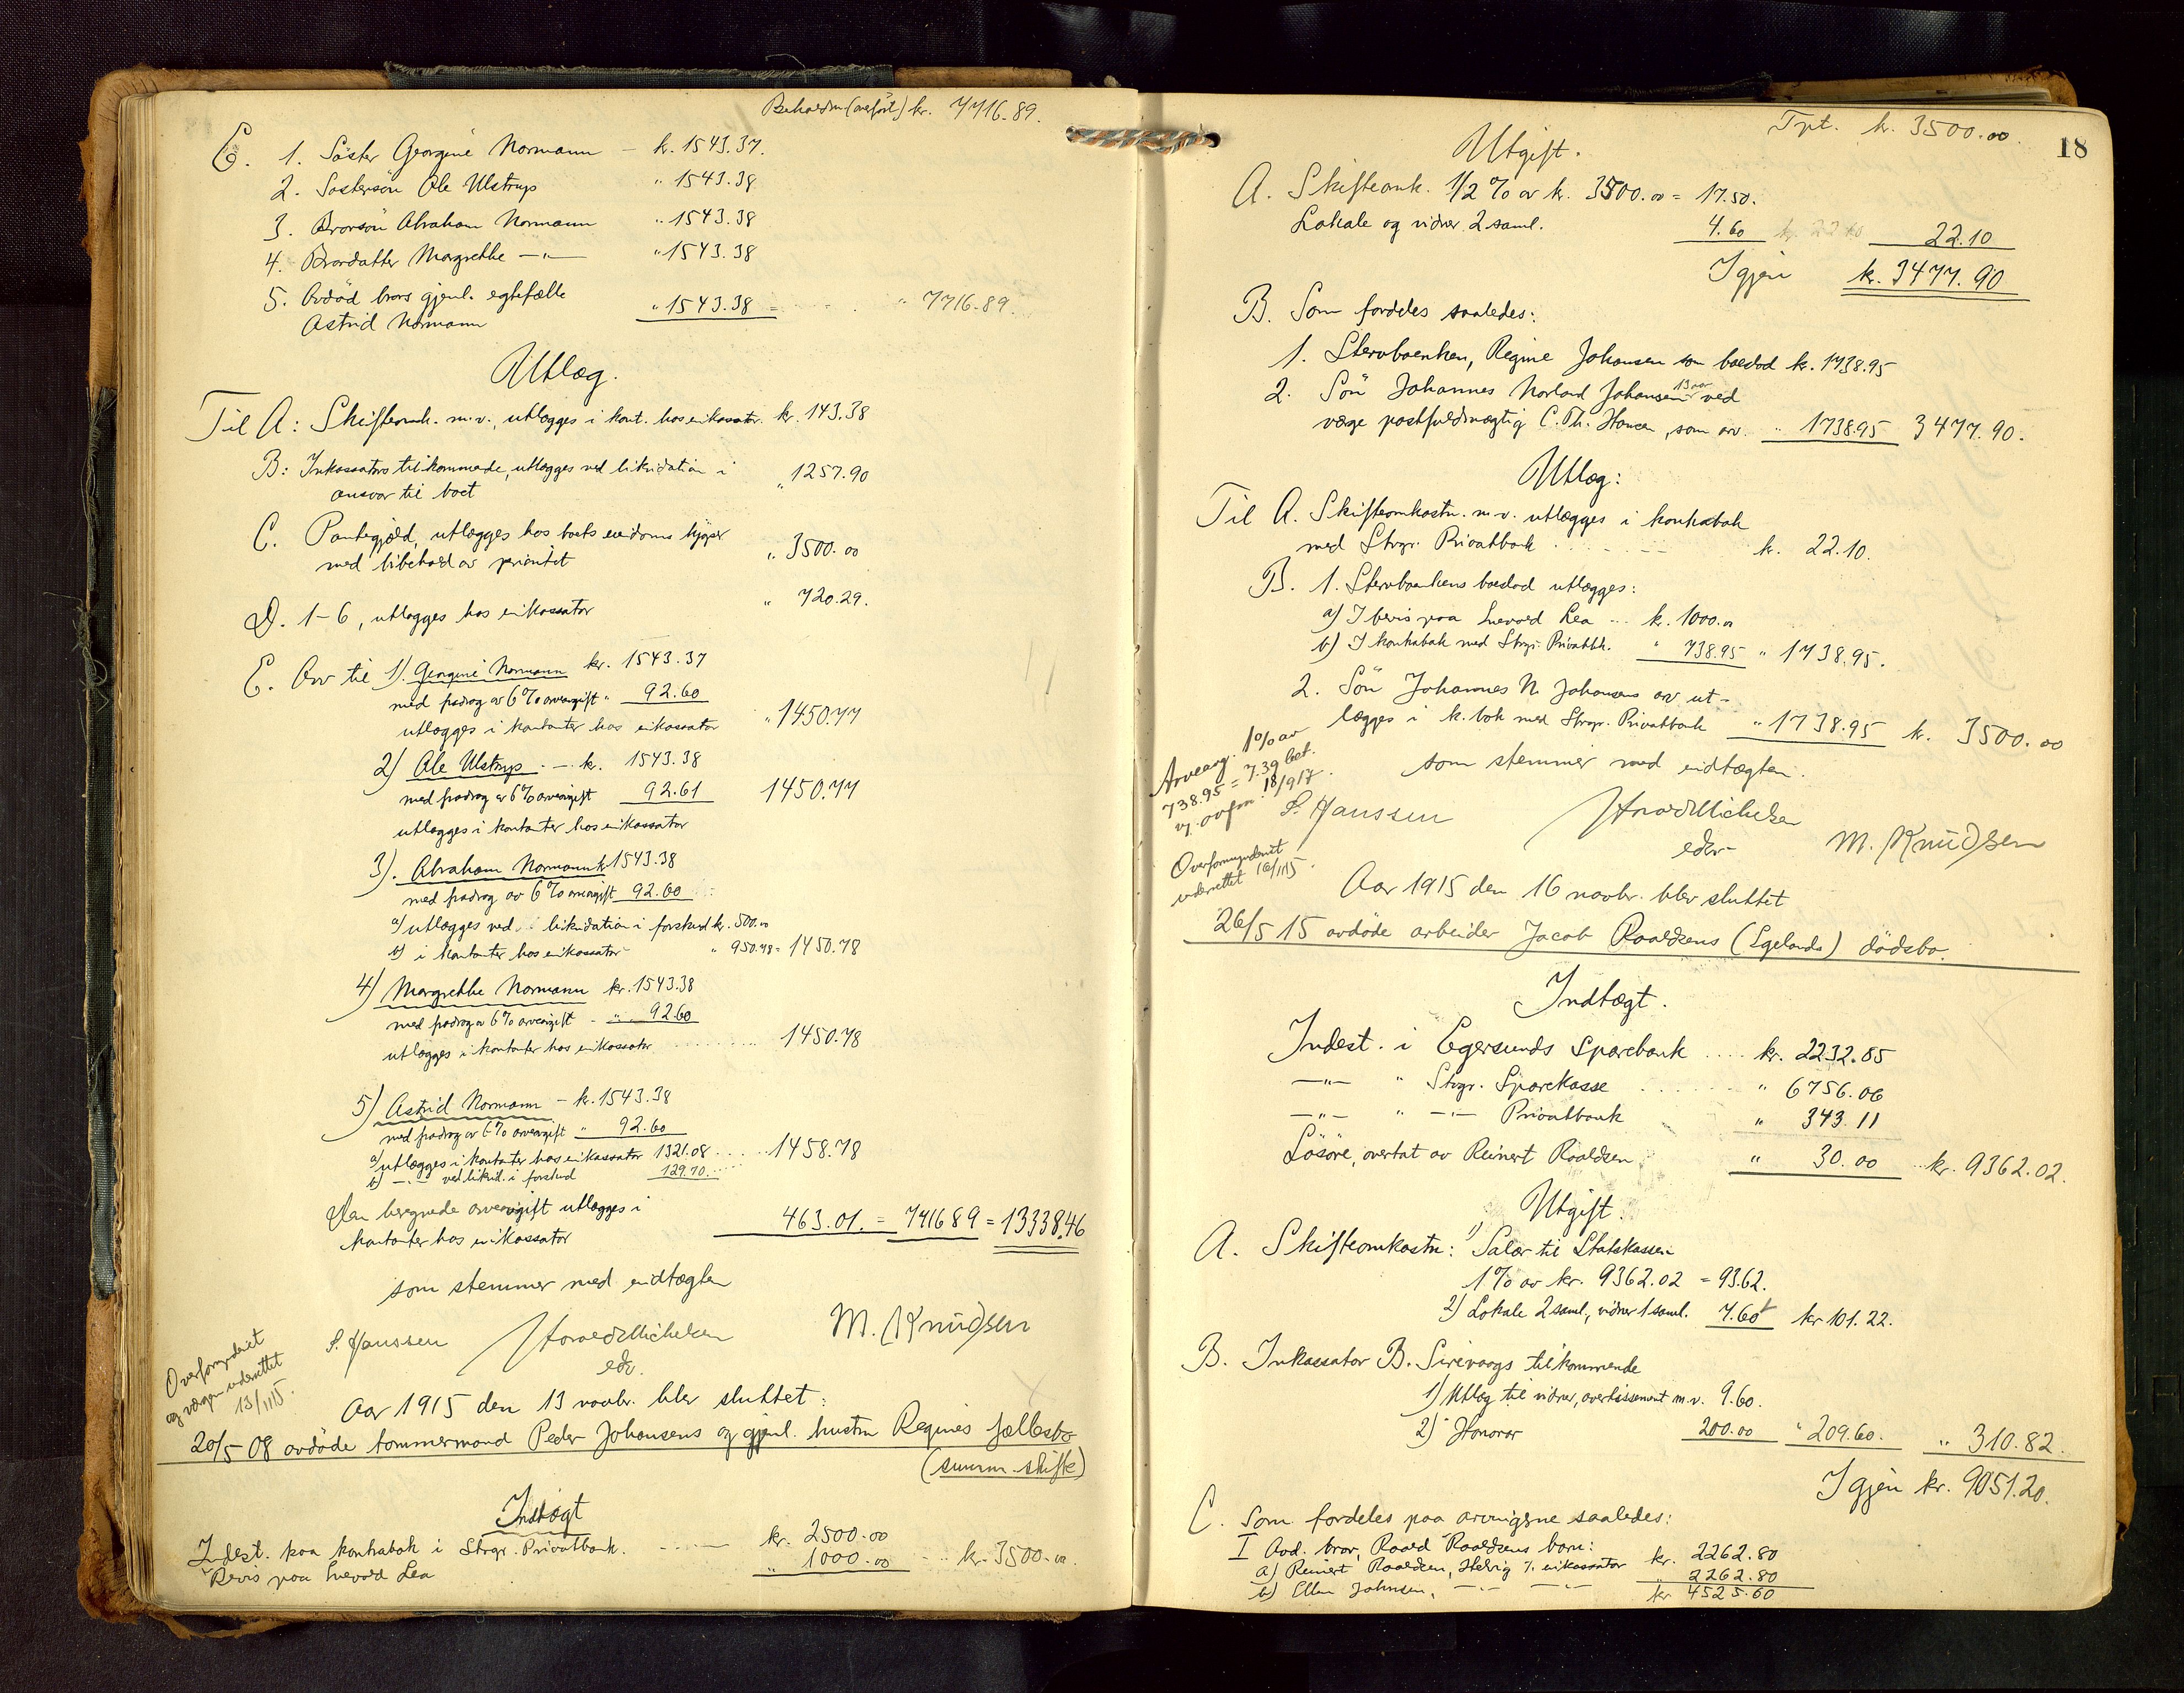 Beholdn. (overført) kr. 7716.89.
E. 1. Søster Georgine Normann — kr. 1543.37.
2. Søstersøn Ole Ulstrup " 1543.38
3. Brorsøn Abraham Normann " 1543.38
4. Brordatter Margrethe —"— " 1543.38
5. Avdød brors gjenl. egtefælle
Astrid Normann " 1543.38 = " 7716.89.
Utlæg.
Til A: Skifteomk. m.v., utlægges i kont. hos inkassator kr. 143.38
B: Inkassators tilkommende, utlægges ved likvidation i
ansvar til boet " 1257.90
C. Pantegjæld, utlægges hos boets eiendoms kjøper
med bibehold av prioritet " 3500.00
D. 1-6, utlægges hos inkassator " 720.29.
E. Arv til 1). Georgine Normann kr. 1543.37
med fradrag av 6% arveavgift " 92.60
utlægges i kontanter hos inkassator " 1450.77
2) Ole Ulstrup — kr. 1543.38
med fradrag av 6% arveavgift 92.61 1450.77
utlægges i kontanter hos inkassator
3). Abraham Normann kr 1543.38
med fradrag av 6% arveavgift 92.60
a) utlægges ved likvidation i forskud kr. 500.00
b) i kontanter hos inkassator " 950.78 = 1450.78
4) Margrethe Normann kr. 1543.38
med fradrag av 6% arveavgift " 92.60
utlægges i kontanter hos inkassator 1450.78
5) Astrid Normann — kr. 1543.38
med fradrag av 6% arveavgift " 92.60
a) utlægges i kontanter hos inkassator 1321.08 1458.78
b) —"— ved likvid. i forskud 129.70
Den beregnede arveavgift utlægges i
kontanter hos inkassator 463.01. = 7716 89 = 13338.46
som stemmer med indtægten
S. Janssen M. Knudsen
edv.
Overformynderiet
og vergen underrettet
13/11 15.
Aar 1915 den 13 novbr. blev sluttet:
20/5 08 avdøde tømmermand Peder Johansens og gjenl. hustru Regines fællesbo
(summ. skifte)
Indtægt
Indest. paa kontrabok i Stvgr. Privatbank. kr. 2500.00
Bevis paa Snevard Lea " 1000.00 kr. 3500.00.
18
Tpt. kr. 3500.00.
Utgift.
A. Skifteomk. 1/2 % av kr. 3500.00 = 17.50.
Lokale og vidner 2 saml. 4.60 22.10
Igjen kr. 3477.90
B. Som fordeles saaledes:
1. Stervboenken, Regine Johansen som boeslod kr. 1738.95
2. Søn Johannes Norland Johansen 13 aar ved
verge postfuldmægtig C. Th. Hansen, som arv. " 1738.95 3477.90.
Utlæg:
Til A. Skifteomkostn. m.v. utlægges i kontrabok
med Stvgr. Privatbank kr. 22.10.
B. 1. Stervboenkens boeslod utlægges:
a) I bevis paa Snevard Lea kr. 1000.00
b) I kontrabok med Stvgr. Privatbk. " 738.95 " 1738.95.
2. Søn Johannes N. Johansens arv ut-
lægges i k.bok med Stvgr. Privatbank " 1738.95 kr. 3500.00
som stemmer med indtægten.
Arveavg. 1% av
738.95 = 7.39 bet.
18/9 17.
S. Janssen M. Knudsen
edv.
Overformynderiet
underrettet 16/11 15.
Aar 1915 den 16 novbr. blev sluttet
26/5 15 avdøde arbeider Jacob Roaldsens (Egelands) dødsbo.
Indtægt.
Indest. i Egersunds Sparebank kr. 2232.85
—"— " Stvgr. Sparekasse " 6756.06
—"— " —"— Privatbank " 343.11
Løsøre, overtat av Reinert Roaldsen " 30.00 kr. 9362.02.
Utgift.
A. Skifteomkostn: 1) Salær til Statskassen
1% av kr. 9362.02 = 93.62.
2) Lokale 2 saml., vidner 1 saml. 7.60 kr 101.22.
B. Inkassator B. Sirevaags tilkommende
1) Utlæg til vidner, avertissement m.v. 9.60.
2) Honorar 200.00 " 209.60. " 310.82.
Igjen kr. 9051.20.
C. Som fordeles paa arvingene saaledes:
I Avd. bror, Roald Roaldsens barn:
a) Reinert Roaldsen, Helvig v. inkassator kr. 2262.80
b) Ellen Johnsen, —"— —"— " 2262.80
kr 4525.60